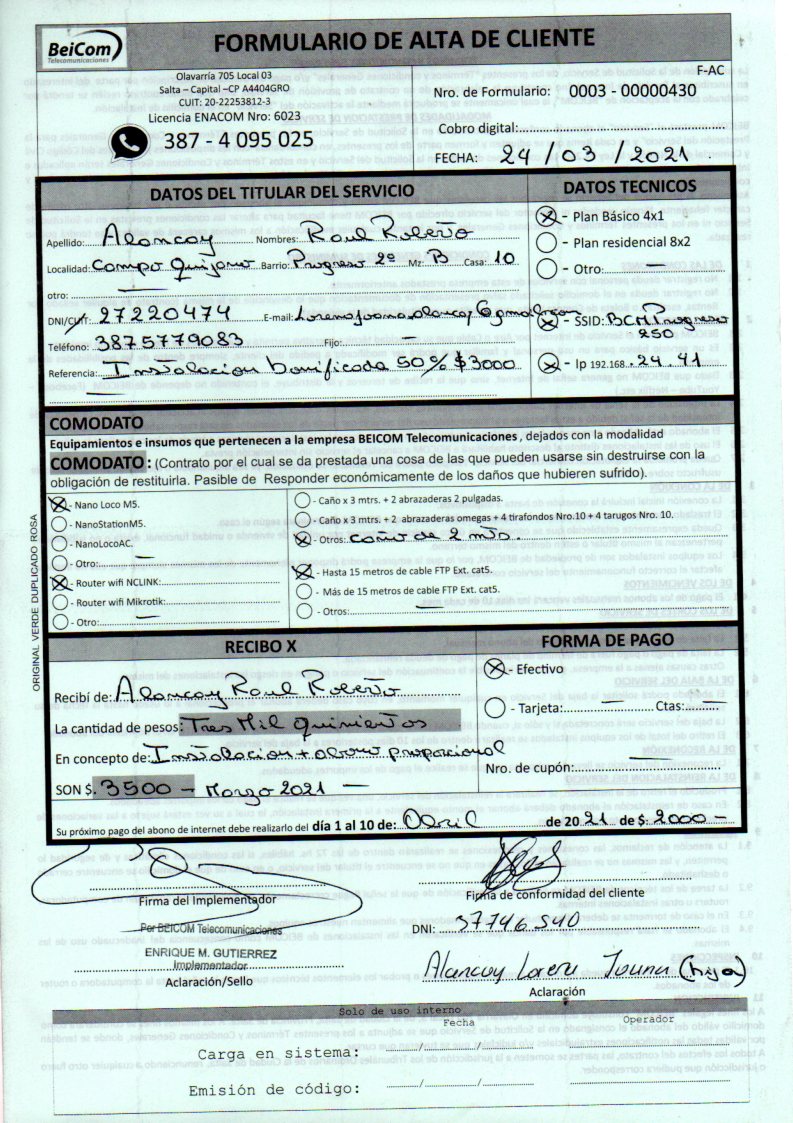 BeiCom
Telecomunicaciones
FORMULARIO DE ALTA DE CLIENTE
Olavarría 705 Local 03
Salta – Capital –CP A4404GRO
CUIT: 20-22253812-3
Licencia ENACOM Nro: 6023
387 - 4 095 025
F-AC
Nro. de Formulario: 0003 - 00000430
Cobro digital:
FECHA: 24 / 03 / 2021
DATOS DEL TITULAR DEL SERVICIO
Apellido: Alancay Nombres: Raul Roberto
Localidad: Campo Quijano Barrio: Progreso 2º Mz: B Casa: 10
otro: —
DNI/CUIT: 27220474 E-mail:
Teléfono: 3875779083 Fijo: —
Referencia: Instalacion bonificada 50% $3000
DATOS TECNICOS
X - Plan Básico 4x1
- Plan residencial 8x2
- Otro: —
X - SSID: BCM.Progreso
250
X - Ip 192.168. 24.41
COMODATO
Equipamientos e insumos que pertenecen a la empresa BEICOM Telecomunicaciones, dejados con la modalidad
COMODATO: (Contrato por el cual se da prestada una cosa de las que pueden usarse sin destruirse con la
obligación de restituirla. Pasible de Responder económicamente de los daños que hubieren sufrido).
X - Nano Loco M5.
- NanoStationM5.
- NanoLocoAC.
- Otro: —
X - Router wifi NCLINK:
- Router wifi Mikrotik:
- Otro: —
- Caño x 3 mtrs. + 2 abrazaderas 2 pulgadas.
- Caño x 3 mtrs. + 2 abrazaderas omegas + 4 tirafondos Nro.10 + 4 tarugos Nro. 10.
X - Otros: caño de 2 mts.
X - Hasta 15 metros de cable FTP Ext. cat5.
- Más de 15 metros de cable FTP Ext. cat5.
- Otros: —
ORIGINAL VERDE DUPLICADO ROSA
RECIBO X
Recibí de: Alancay Raul Roberto
La cantidad de pesos: Tres Mil Quinientos
En concepto de: Instalacion + abono proporcional
SON $. 3500 — Marzo 2021 —
FORMA DE PAGO
X - Efectivo
- Tarjeta: — Ctas: —
Nro. de cupón: —
Su próximo pago del abono de internet debe realizarlo del día 1 al 10 de: Abril de 2021 de $: 2000 —
Firma del Implementador
Por BEICOM Telecomunicaciones
ENRIQUE M. GUTIERREZ
Implementador
Aclaración/Sello
Firma de conformidad del cliente
DNI: 37746540
Alancay Lorena Juana (hija)
Aclaración
Solo de uso interno
Fecha Operador
Carga en sistema: / /
Emisión de código: / /